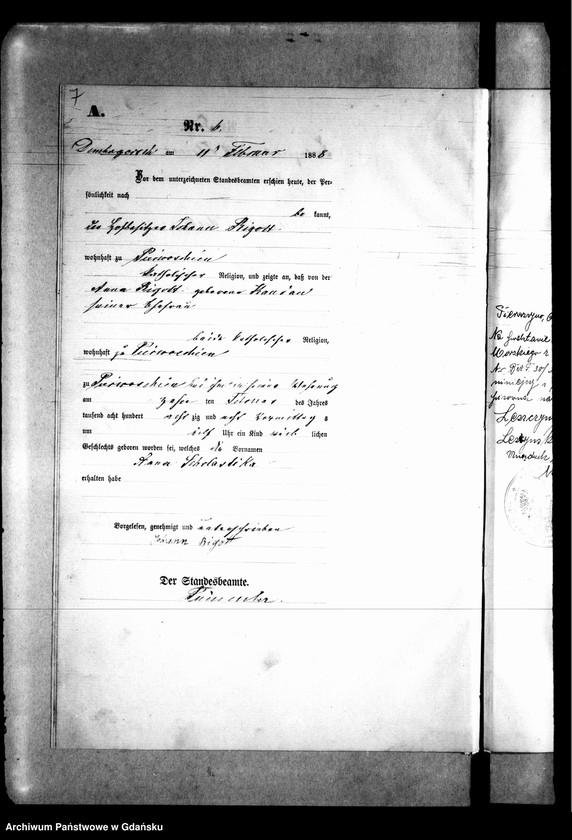 7
A.
Nr. 6.
Dembogorsch am 11t Februar 1888
Vor dem unterzeichneten Standesbeamten erschien heute, der Per-
sönlichkeit nach
be kannt,
der Hofbesitzer Johann Rigott
wohnhaft zu Pierwoschin
katholischer Religion, und zeigte an, daß von der
Anna Rigott geborene
seiner Ehefrau
beide katholischer Religion,
wohnhaft zu Pierwoschin
zu Pierwoschin bei ihm in seiner Wohnung
am zehn ten Februar des Jahres
tausend acht hundert acht zig und acht Vormittag s
um Uhr ein Kind weib lichen
Geschlechts geboren worden sei, welches die Vornamen
Anna Scholastika
erhalten habe
Vorgelesen, genehmigt und unterschrieben
Johann Rigott
Der Standesbeamte.
Pierwszyno,
Na
Morskiego
Nr
Leszczyn
Archiwum Państwowe w Gdańsku